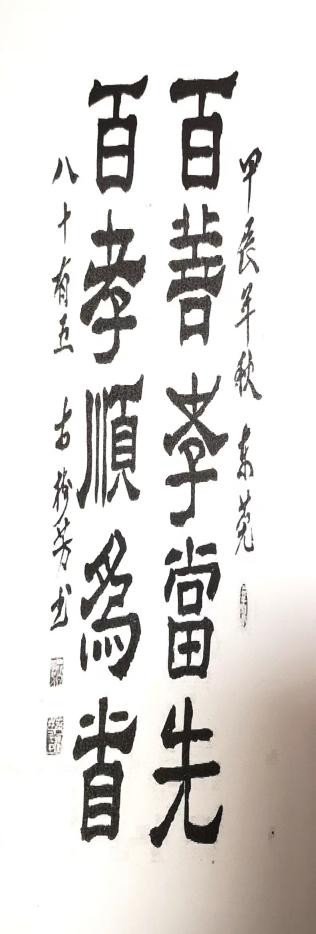 甲辰年秋 東莞
百善孝當先
百孝順為首
八十有五 古樹芳書